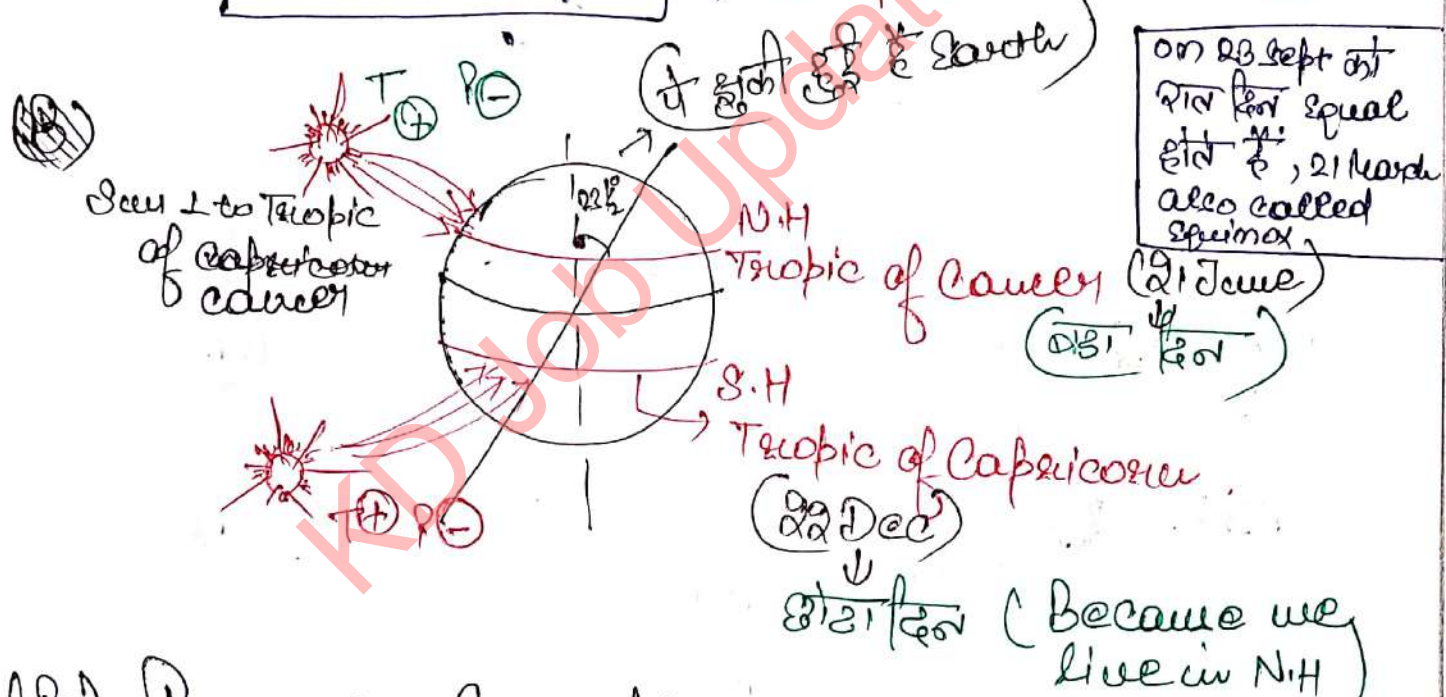 पे झुकी हुई है Earth)
on 23 Sept को
रात दिन equal
होते हैं, 21 March
also called
Equinox
T + P -
Sun ⊥ to Tropic
of capricorn
cancer
N.H
Tropic of Cancer (21 June)
(बड़ा दिन)
S.H
Tropic of Capricorn
(22 Dec)
छोटा दिन (Because we
live in N.H)
T + P -
KD Job Updat